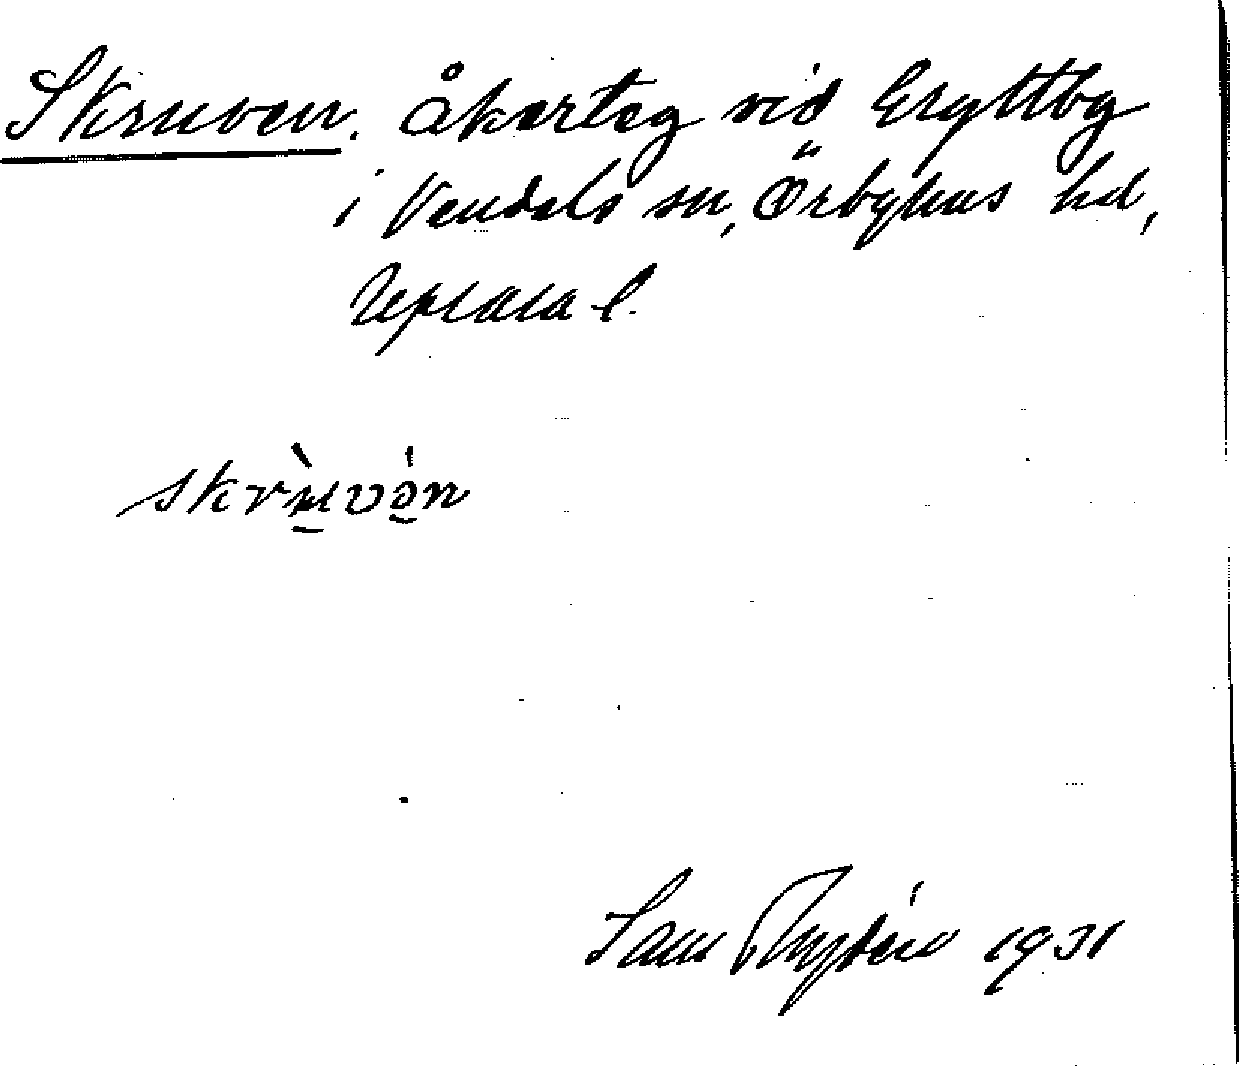 Skruven. Åkerteg vid Gryttby
i Vendels sn, Örbyhus hd,
Upsala l.
skrùvə́n
Sam Rydén 1931